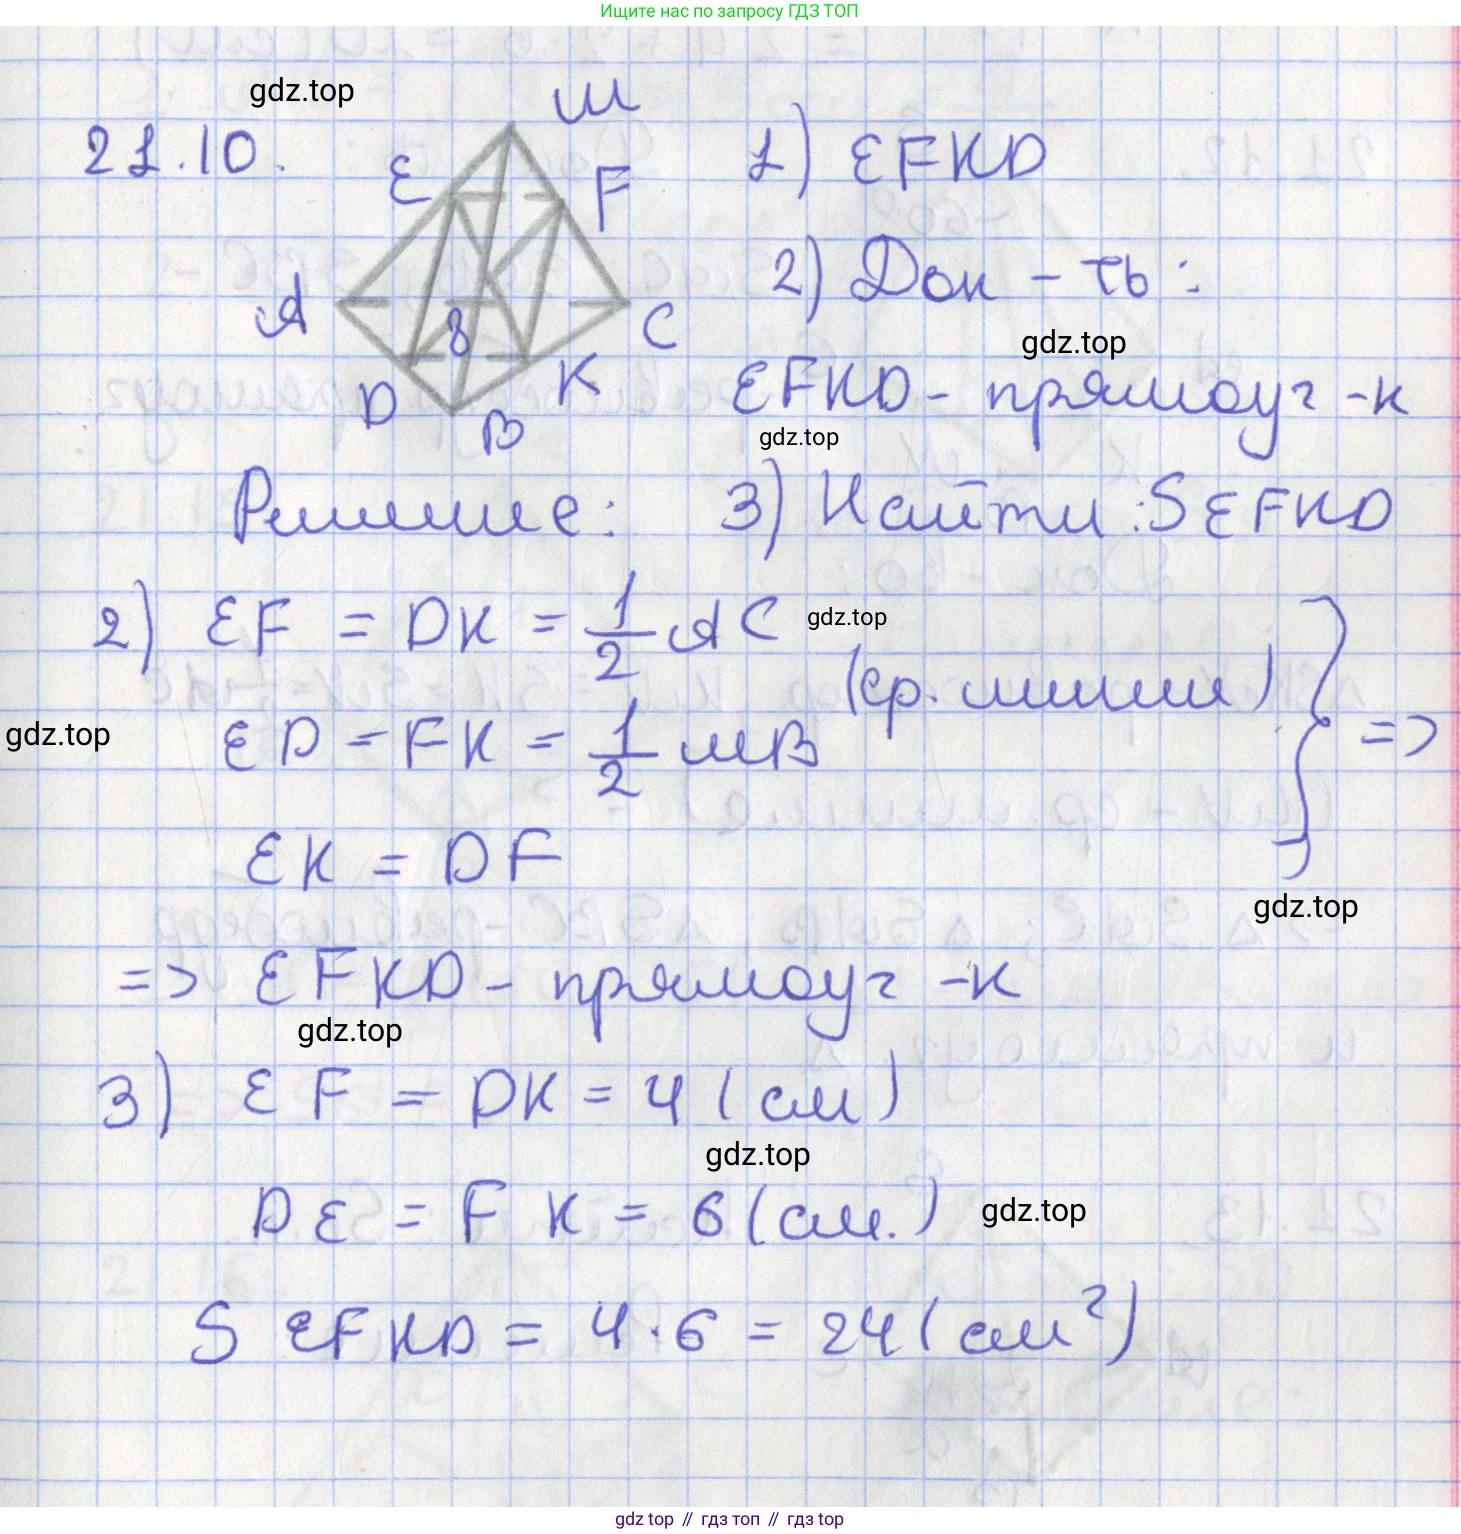 Ищите нас по запросу ГДЗ ТОП
gdz.top
21.10.
M
E
F
A
8
C
D
K
B
1) EFKD
2) Док-ть:
gdz.top
EFKD - прямоуг-к
gdz.top
Решение:
3) Найти: S EFKD
2) EF = DK = 1/2 AC
gdz.top
(ср. линии)
gdz.top
ED = FK = 1/2 MB
} =>
EK = DF
gdz.top
=> EFKD - прямоуг-к
gdz.top
3) EF = DK = 4 (см)
gdz.top
DE = FK = 6 (см.)
gdz.top
S EFKD = 4 · 6 = 24 (см²)
gdz top // гдз топ // гдз top